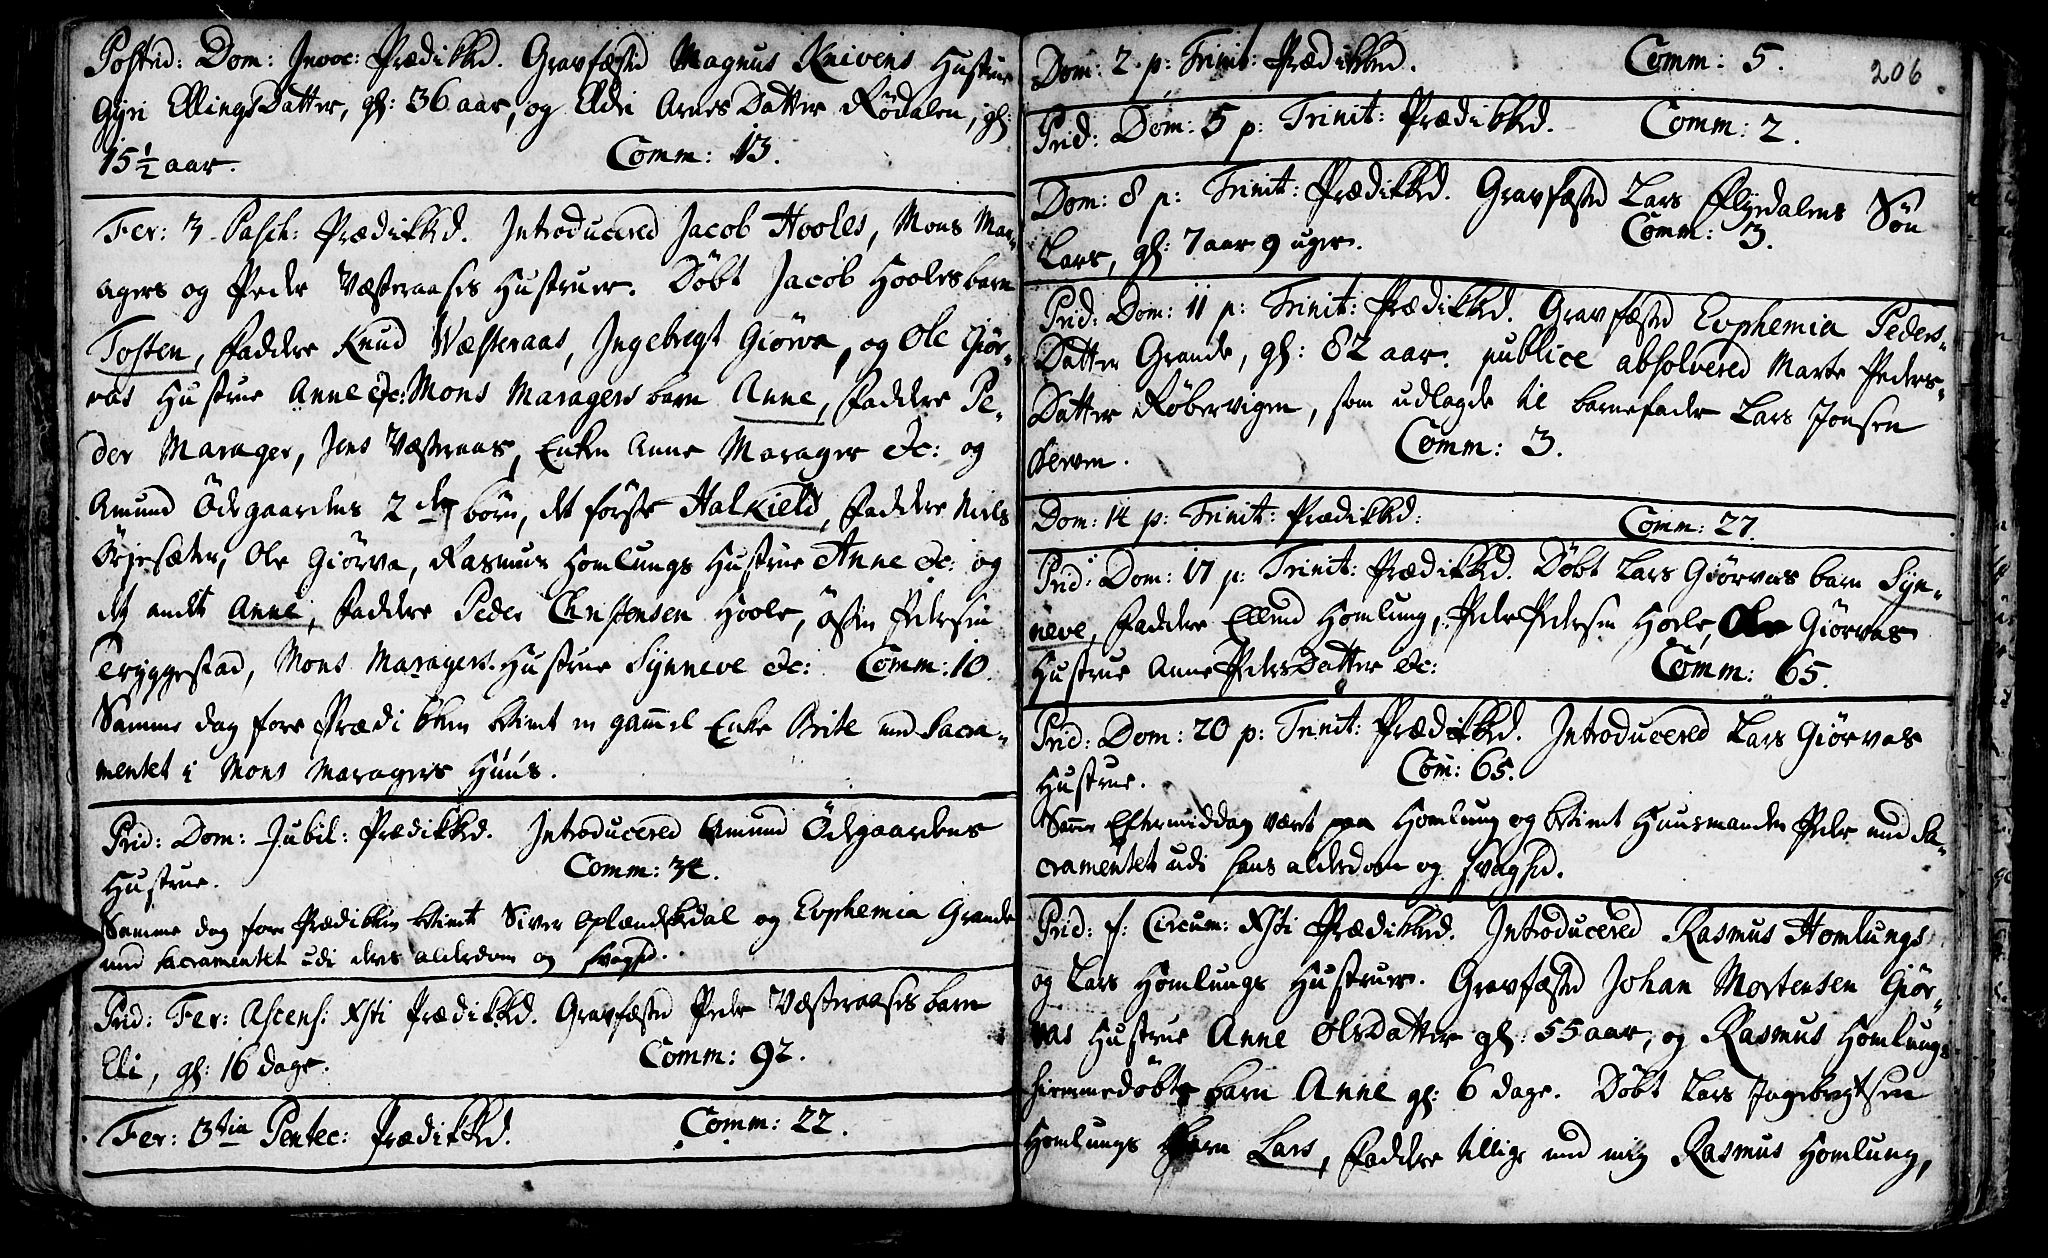 Postrid: Dom: Invoc: Prædikked. Gravfæsted Magnus Knivens Hustrue
Gyri EllingsDatter, gl: 36 aar, og Eldri ArnesDatter Rødalen, gl:
15½ aar. Comm: 13.
Fer: 3 Pasch: Prædikked. Introducered Jacob Hooles, Mons Mar-
agers og Peder Væsteraases Hustruer. Døbt Jacob Hooles barn
Tosten, Faddere Knud Væsteraas, Ingebregt Giørva, og Ole Giør-
vas Hustrue Anne &c: Mons Maragers barn Anne, Faddere Pe-
der Marager, Jens Væsteraas, Enken Anne Marager &c: og
Amund Ödegaardens 2de børn, det første Halkield, Faddere Niels
Ørjesæter, Ole Giørva, Rasmus Homlungs Hustrue Anne &c: og
det andet Anne, Faddere Peder Christensen Hoole, østen Pedersen
Tryggestad, Mons Maragers Hustrue Synneve &c: Comm: 10.
Samme dag före Prædiken betient en gam̄el Enke Brite med Sacra-
mentet i Mons Maragers Huus.
Prid: Dom: Jubil: Prædikked. Introducered Amund Ödegaardens
Hustrue. Comm: 34.
Samme dag for Prædiken betient Siver Oplændskdal og Euphemia Grande
med Sacramentet udi deres alderdom og svaghed.
Prid: Fer: Ascens: Xsti Prædikked. Gravfæsted Peder Væsteraases barn
Eli, gl: 16 dage. Comm: 92.
Fer: 3tia Pentec: Prædikked. Comm: 22.
Dom: 2 p: Trinit: Prædikked. Comm: 5. 206
Prid: Dom: 5 p: Trinit: Prædikked. Comm: 2.
Dom: 8 p: Trinit: Prædikked. Gravfæsted Lars Flydalens Søn
Lars, gl: 7 aar 9 uger. Comm: 3.
Prid: Dom: 11 p: Trinit: Prædikked. Gravfæsted Euphemia Peders-
Datter Grande, gl: 82 aar. publice absolvered Marte Peders-
Datter Robervigen, som udlagde til barnefader Lars Jonsen
Comm: 3.
Dom: 14 p: Trinit: Prædikked. Comm: 27.
Prid: Dom: 17 p: Trinit: Prædikked. Døbt Lars Giørvas barn Syn-
neve, Faddere Ellend Homlung, Peder Pedersen Hoele, Ole Giørvas
Hustrue Anne PedersDatter &c: Comm: 65.
Prid: Dom: 20 p: Trinit: Prædikked. Introducered Lars Giørvas
Hustrue. Com̄: 65.
Sam̄e Eftermiddag vært paa Homlung og betient Huusmanden Peder med Sa-
cramentet udi hans alderdom og svaghed.
Prid: f: Circum: Xsti Prædikked. Introducered Rasmus Homlungs
og Lars Homlungs Hustruer. Gravfæsted Johan Mortensen Giør-
vas Hustrue Anne OlsDatter gl: 55 aar, og Rasmus Homlungs
hiemmedøbte barn Anne gl: 6 dage. Døbt Lars Ingebregtsen
Homlungs barn Lars, Faddere tillige med mig Rasmus Homlung,